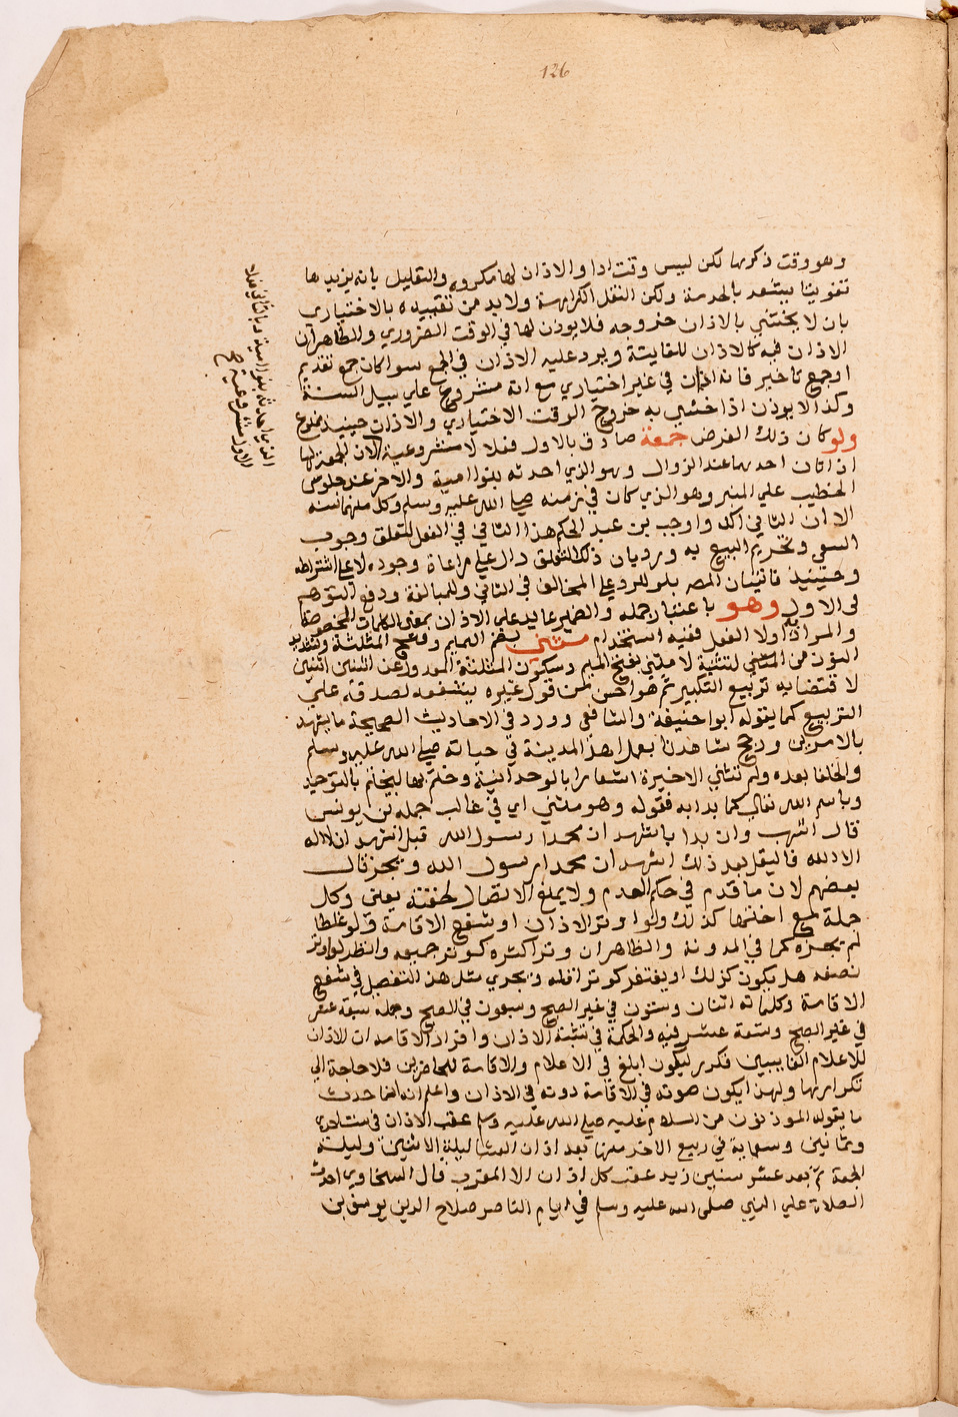 126
وهو وقت ذكرها لكن ليس وقت ادا والاذان لها مكروه والتعليل بانه يزيدها
تفويتا يشعر بالحرمة ولكن النقل الكراهة ولا بد من تقييده بالاختياري
بان لا يختشي بالاذان خروجه فلا يوذن لها في الوقت الضروري والظاهر ان
الاذان فيه كالاذان للفايتة ويرد عليه الاذان في الجمع سوا كان جمع تقديم
او جمع تاخير فانه اذان في غير اختياري مع انه مشروع علي سبيل السنة
وكذا لا يوذن اذا خشي به خروج الوقت الاختياري والاذان حينيذ ممنوع
ولو كان ذلك الفرض جمعة صادق بالاول فلا لا مشروعية لان للجمعة
اذانان احدهما عند الزوال وهو الذي احدثه بنوا امية والاخر عند جلوس
الخطيب علي المنبر وهو الذي كان في زمنه صلي الله عليه وسلم وكل منهما سنة
الا ان الثاني اكد واوجب بن عبد الحكم هذا الثاني في الفعل لتعلق وجوب
السعي وتحريم البيع به ورد بان ذلك التعلق دال علي مراعاة وجوده لا علي اشتراطه
وحينيذ فاتيان المص بلو للرد علي المخالف في الثاني وللمبالغة ودفع التوهم
في الاول وهو باعتبار جمله والضمير عايد علي الاذان بمعني الكلمات المخصوصة
والمراد به اولا الفعل ففيه استخدام مثني بضم الميم وفتح المثلثة وتشديد
النون من المثني لتثنية لا مثني بفتح الميم وسكون المثلثة المعدول عن اثنين اثنين
لا قتضايه تربيع التكبير ثم هو احسن من قول غيره يشفعه لصدقه علي
التربيع كما يقوله ابوا حنيفة والشافعي وورد في الاحاديث الصحيحة ما يشهد
بالامرين ورجح شاهدنا بعمل اهل المدينة في حياته صلي الله عليه وسلم
والخلفا بعده ولم تثني الاخيرة اشعارا بالوحدانية وختم بها ليختم بالتوحيد
وباسم الله تعالي كما بدا به فقوله وهو مثني اي في غالب جمله بن يونس
قال اشهب وان بدا باشهد ان محمدا رسول الله قبل اشهد ان لا اله
الا الله فاليقل بعد ذلك اشهد ان محمدا رسول الله ويجز قال
بعضهم لان ما قدم في حكم العدم ولا يمنع الاتصال لخفته يعني وكل
جملة مع اختها كذلك ولو اوتر الاذان او شفع الاقامة ولو غلطا
لم يجزه كما في المدونة والظاهر ان وتر اكثره كوتر جميعه وانظر لو اوتر
نصفه هل يكون كذلك او يغتفر كوتر اقله ويجري مثل هذا التفصيل في شفع
الاقامة وكلماته اثنان وستون في غير الصبح وسبعون في الصبح وجمله سبعة عشر
في غير الصبح وتسعة عشر فيه والحكمة في تثنية الاذان وافراد الاقامة ان الاذان
للاعلام الغايبين فكرر ليكون ابلغ في الاعلام والاقامة للحاضرين فلا حاجة الي
تكرارها ولهذا يكون صوته في الاقامة دونه في الاذان واعلم انه انما حدث
ما يقوله الموذنون من السلام عليه صلي الله عليه وسلم عقب الاذان في سنة احدي
وثمانين وسبعماية في ربيع الاخر منها بعد اذان العشا ليلة الاثنين وليلة
الجمعة ثم بعد عشر سنين زيد عقب كل اذان الا المغرب قال السخاوي احدث
الصلاة علي النبي صلي الله عليه وسلم في ايام الناصر صلاح الدين يوسف بن
الذي احدثه بنوا امية وبالثاني فلا
الاول مشروعية صح